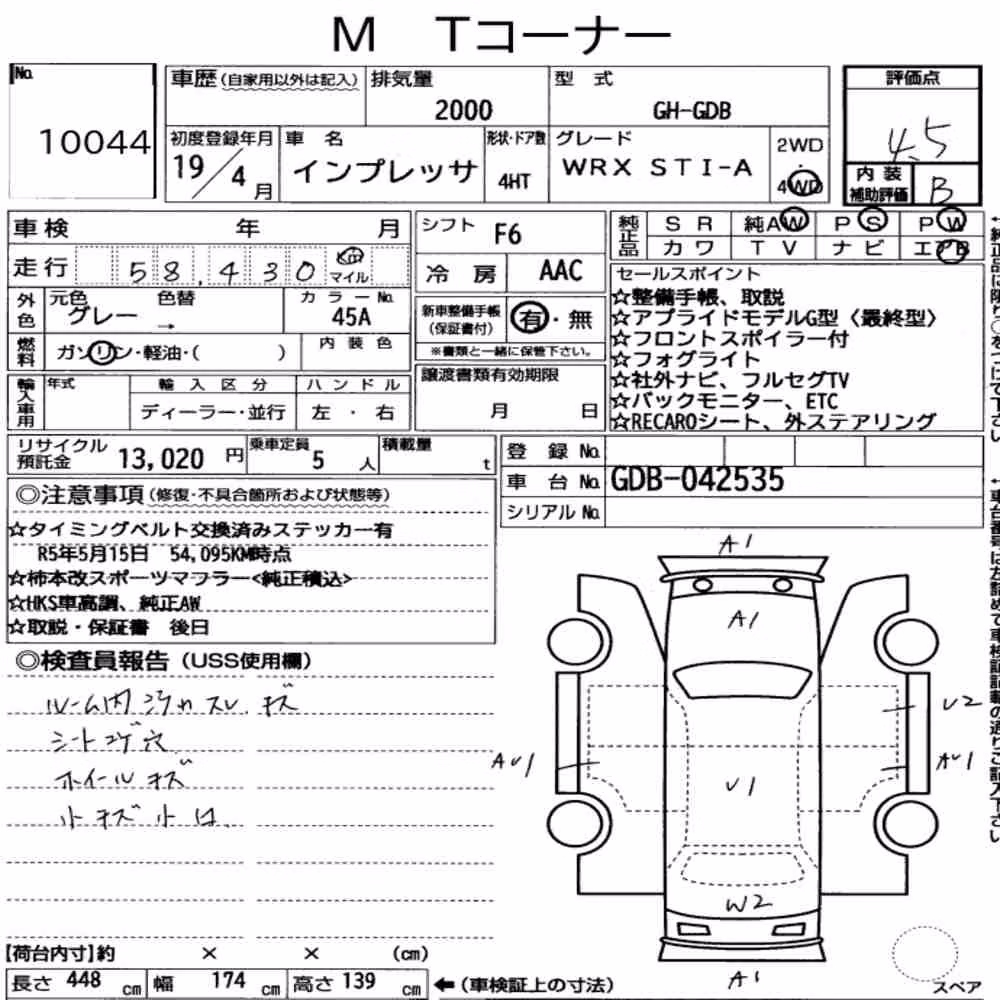 M Tコーナー
No.
10044
車歴(自家用以外は記入)
排気量
2000
型 式
GH-GDB
評価点
4.5
初度登録年月
19/4月
車 名
インプレッサ
形状・ドア数
4HT
グレード
WRX STI-A
2WD
4WD
内 装
補助評価
B
車検 年 月
シフト F6
純正品
S R 純AW P S P W
カ ワ T V ナ ビ エアB
走行 58,430 Km
マイル
冷 房 AAC
セールスポイント
☆整備手帳、取説
☆アプライドモデルG型〈最終型〉
☆フロントスポイラー付
☆フォグライト
☆社外ナビ、フルセグTV
☆バックモニター、ETC
☆RECAROシート、外ステアリング
外色
元色 色替
グレー →
カ ラ ー No.
45A
新車整備手帳
(保証書付)
有・無
※書類と一緒に保管下さい。
燃料
ガソリン・軽油・( )
内 装 色
譲渡書類有効期限
月 日
輸入車用
年式
輸 入 区 分
ディーラー・並行
ハ ン ド ル
左 ・ 右
リサイクル
預託金
13,020 円
乗車定員
5 人
積載量
t
登 録 No.
車 台 No. GDB-042535
シリアル No.
◎注意事項(修復・不具合箇所および状態等)
☆タイミングベルト交換済みステッカー有
R5年5月15日 54,095KM時点
☆柿本改スポーツマフラー<純正積込>
☆HKS車高調、純正AW
☆取説・保証書 後日
◎検査員報告(USS使用欄)
ルーム内 ヨゴレ スレ キズ
シートコゲ穴
ホイール キズ
小キズ 小凹
A1
A1
U2
AU1
AU1
U1
W2
A1
スペア
【荷台内寸】約 × × (cm)
長さ 448 cm 幅 174 cm 高さ 139 cm ←(車検証上の寸法)